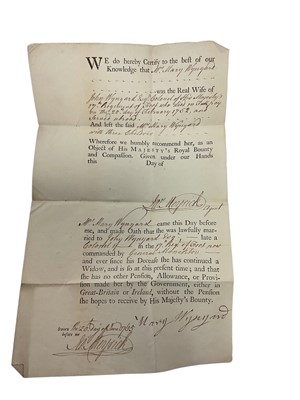 WE do hereby Certify to the best of our
Knowledge that Mrs Mary Wynyard
was the Real Wife of
John Wynyard Esqr Colonel of His Majesty's
17th Regiment of Foot who died
the 20th day of February 1752
And left the said Mrs Mary Wynyard
with three Children
Wherefore we humbly recommend her, as an
Object of His MAJESTY'S Royal Bounty
and Compassion. Given under our Hands
this Day of
Mrs Mary Wynyard came this Day before
me, and made Oath that she was lawfully married
to John Wynyard Esqr late a
Colonel of the 17th Regt of Foot now
commanded by General Monckton
and ever since his Decease she has continued a
Widow, and is so at this present time; and that
she has no other Pension, Allowance, or Provision
made her by the Government, either in
Great-Britain or Ireland, without the Pension
she hopes to receive by His Majesty's Bounty.
Mary Wynyard
Sworn day of
before me